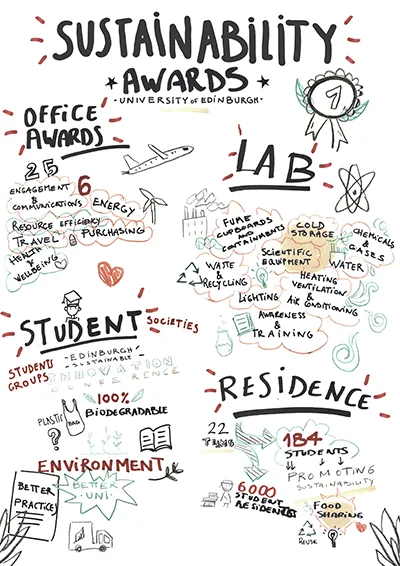 SUSTAINABILITY
AWARDS
- UNIVERSITY OF EDINBURGH -
1
OFFICE
AWARDS
25
ENGAGEMENT
&
COMMUNICATIONS
6
ENERGY
RESOURCE EFFICIENCY
TRAVEL
PURCHASING
HEALTH
&
WELLBEING
LAB
FUME
CUPBOARDS
AND
CONTAINMENTS
COLD
STORAGE
CHEMICALS
&
GASES
SCIENTIFIC
EQUIPMENT
WATER
WASTE
&
RECYCLING
HEATING
VENTILATION
&
AIR CONDITIONING
LIGHTING
AWARENESS
&
TRAINING
STUDENT
SOCIETIES
STUDENTS
GROUPS
- EDINBURGH -
SUSTAINABLE
INNOVATION
CONFERENCE
100%
BIODEGRADABLE
PLASTIC
BAG
?
ENVIRONMENT
BETTER
UNI
BETTER
PRACTICES
RESIDENCE
22
TEAMS
184
STUDENTS
PROMOTING
SUSTAINABILITY
6000
STUDENT
RESIDENCES
FOOD
SHARING
REUSE